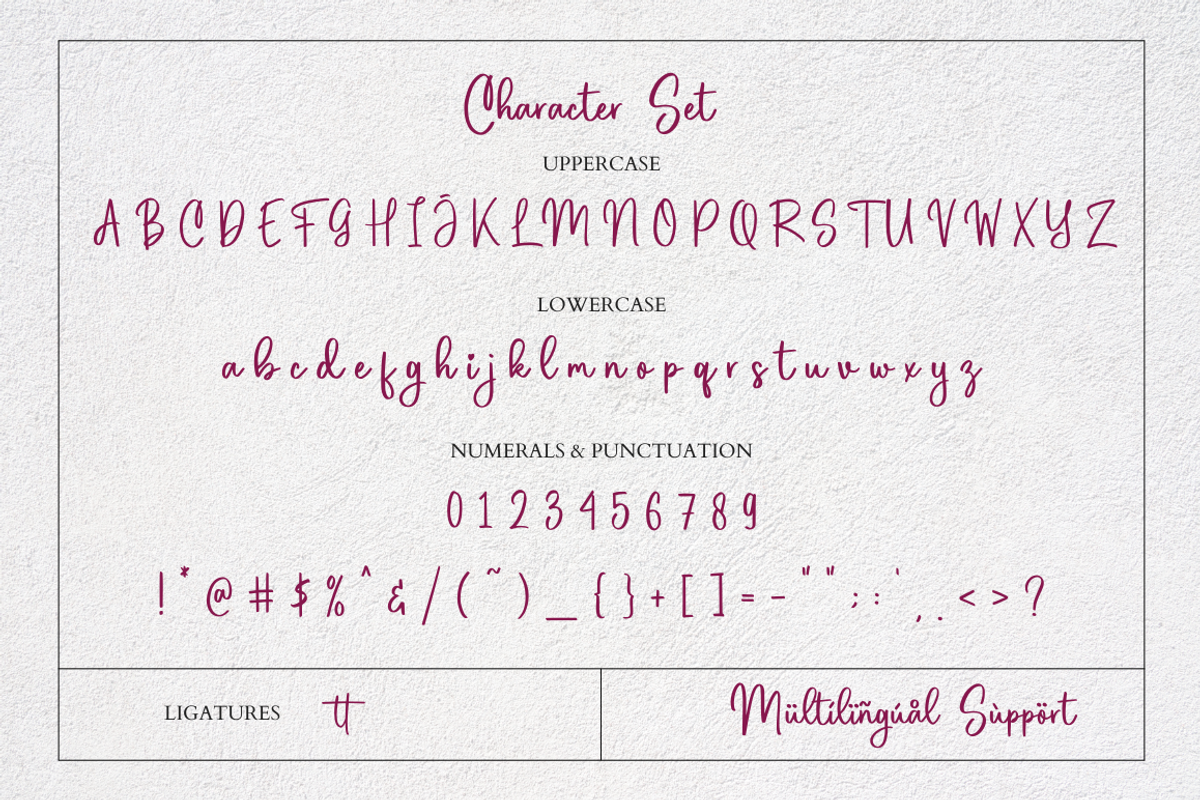 Character Set
UPPERCASE
A B C D E F G H I J K L M N O P Q R S T U V W X Y Z
LOWERCASE
a b c d e f g h i j k l m n o p q r s t u v w x y z
NUMERALS & PUNCTUATION
0 1 2 3 4 5 6 7 8 9
! * @ # $ % ^ & / ( ~ ) _ { } + [ ] = - " " ; : ' , . < > ?
LIGATURES tt
Mültílïñgúål Sùppört